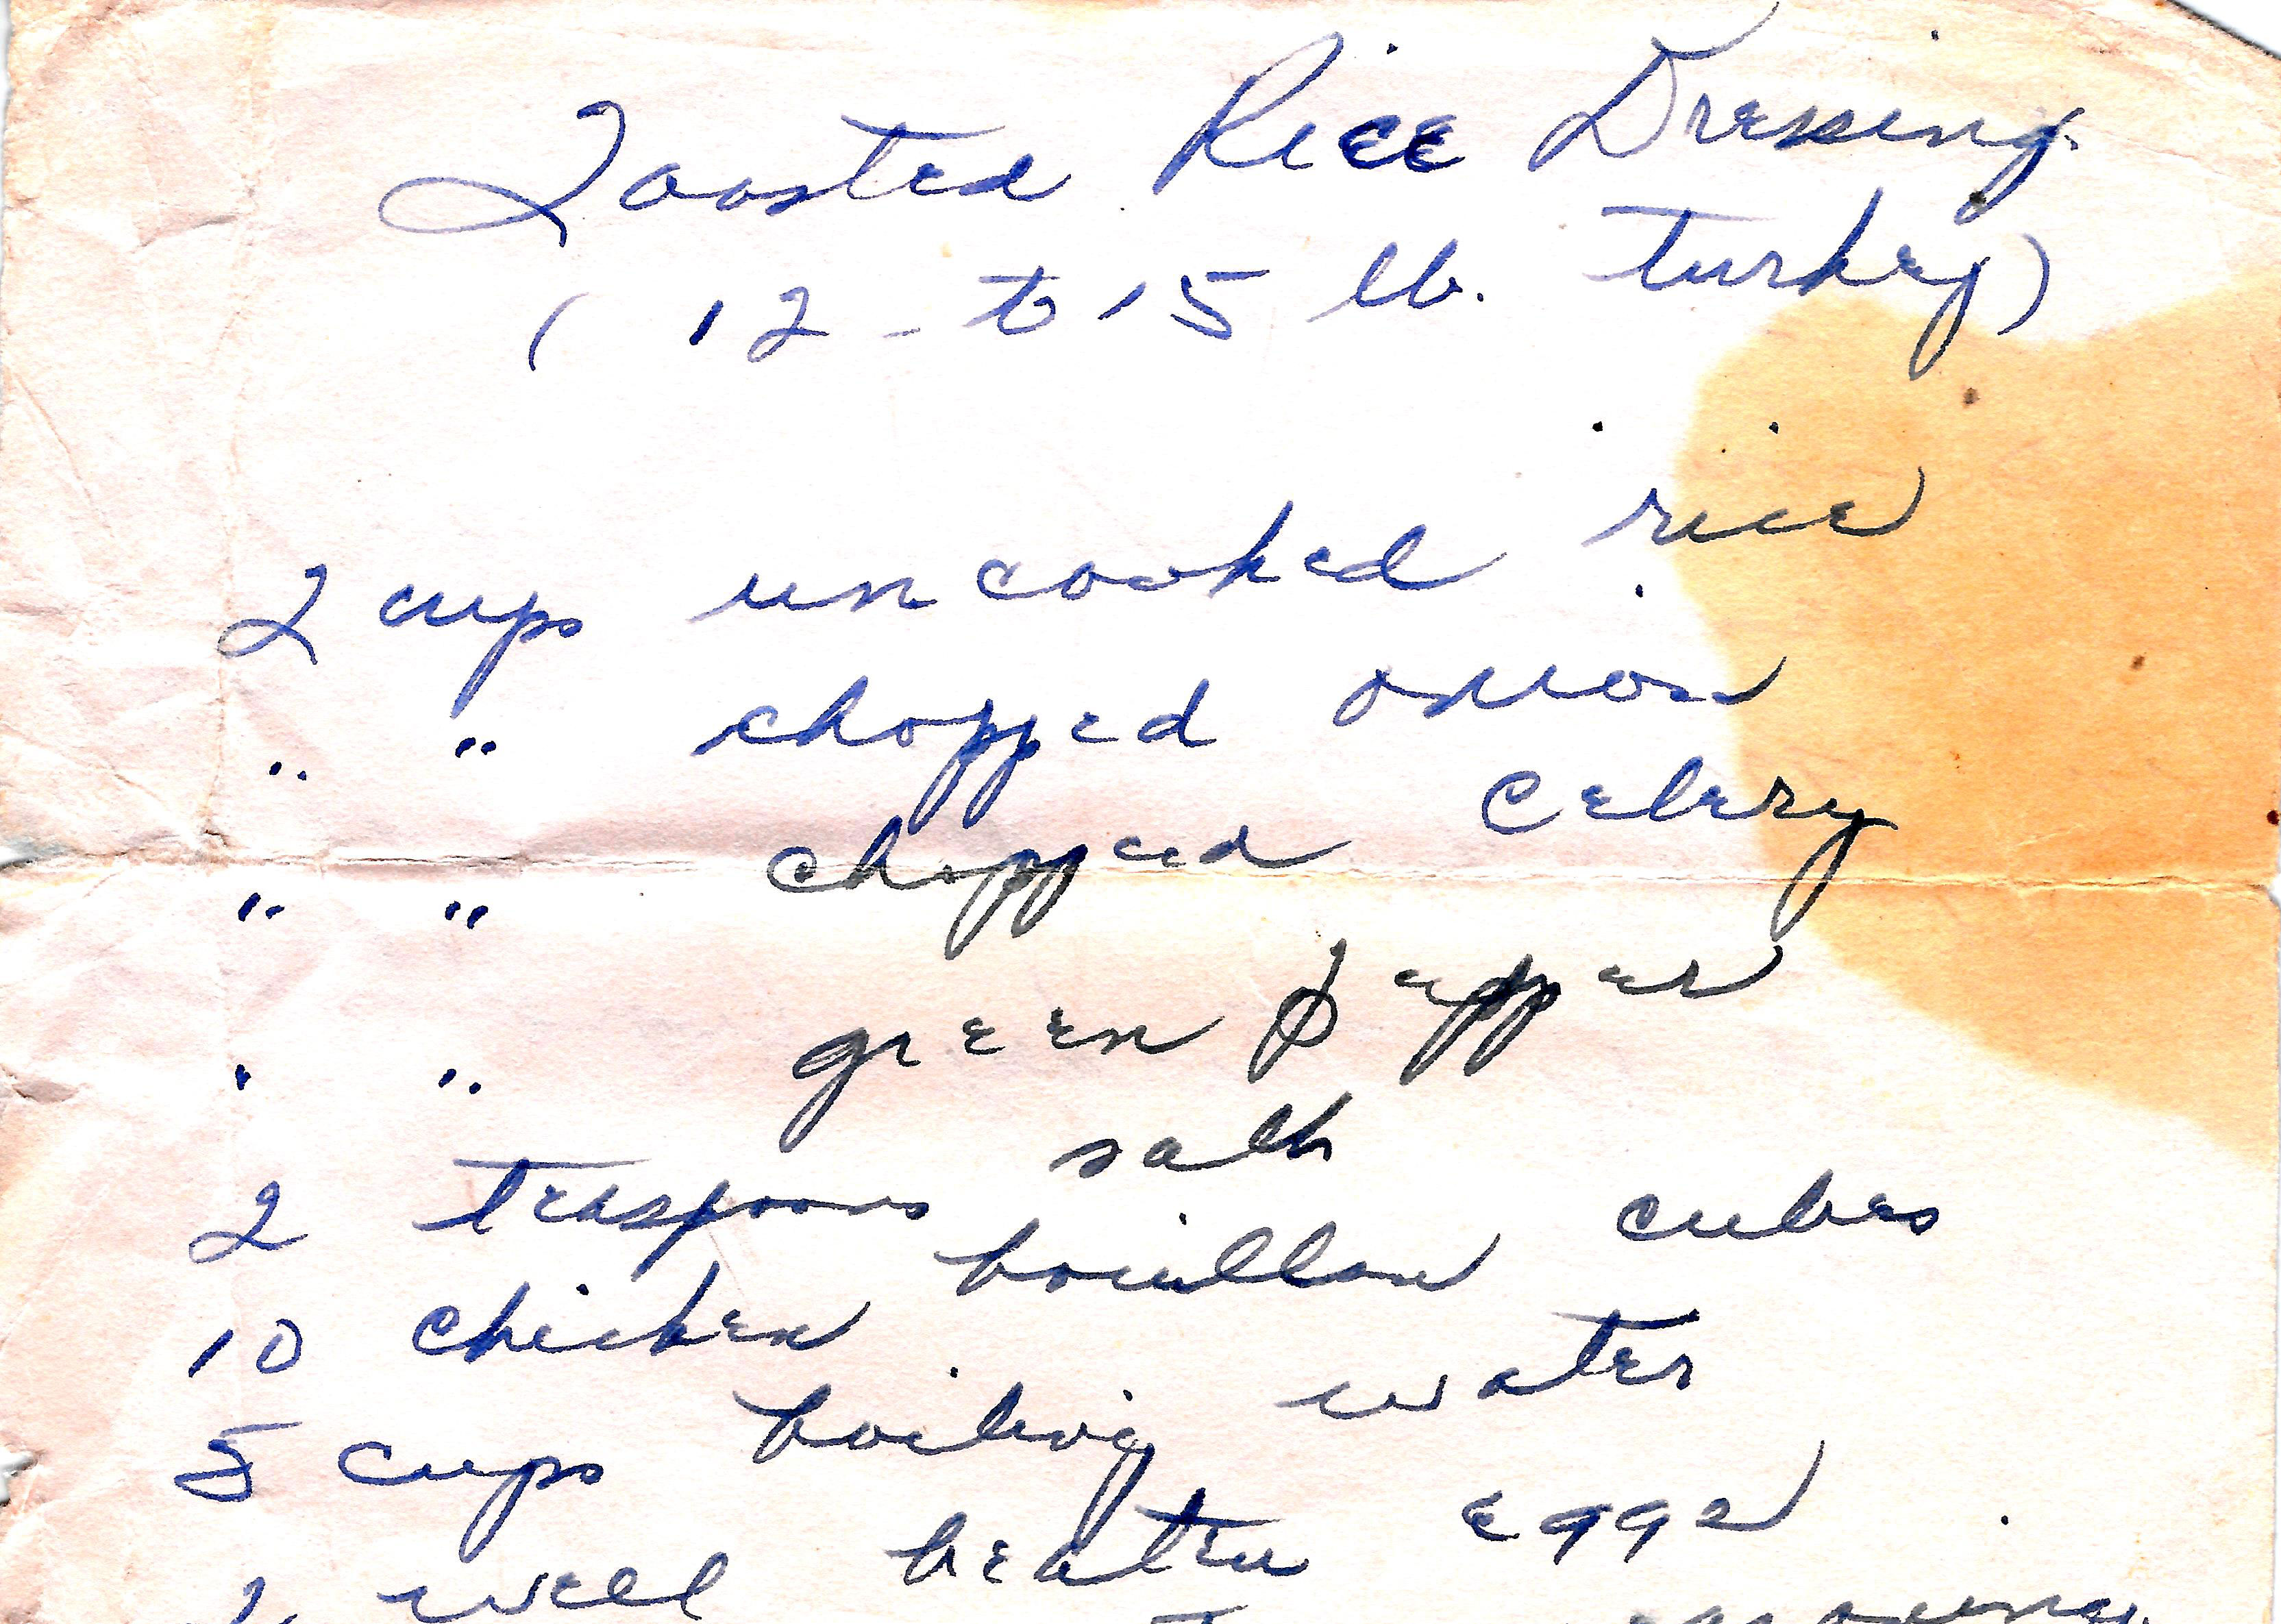 Toasted Rice Dressing
( 12 - to 15 lb. turkey)
2 cups uncooked rice
" " chopped onion
" " chopped celery
" " green pepper
2 teaspoons salt
10 chicken bouillon cubes
5 cups boiling water
2 well beaten eggs